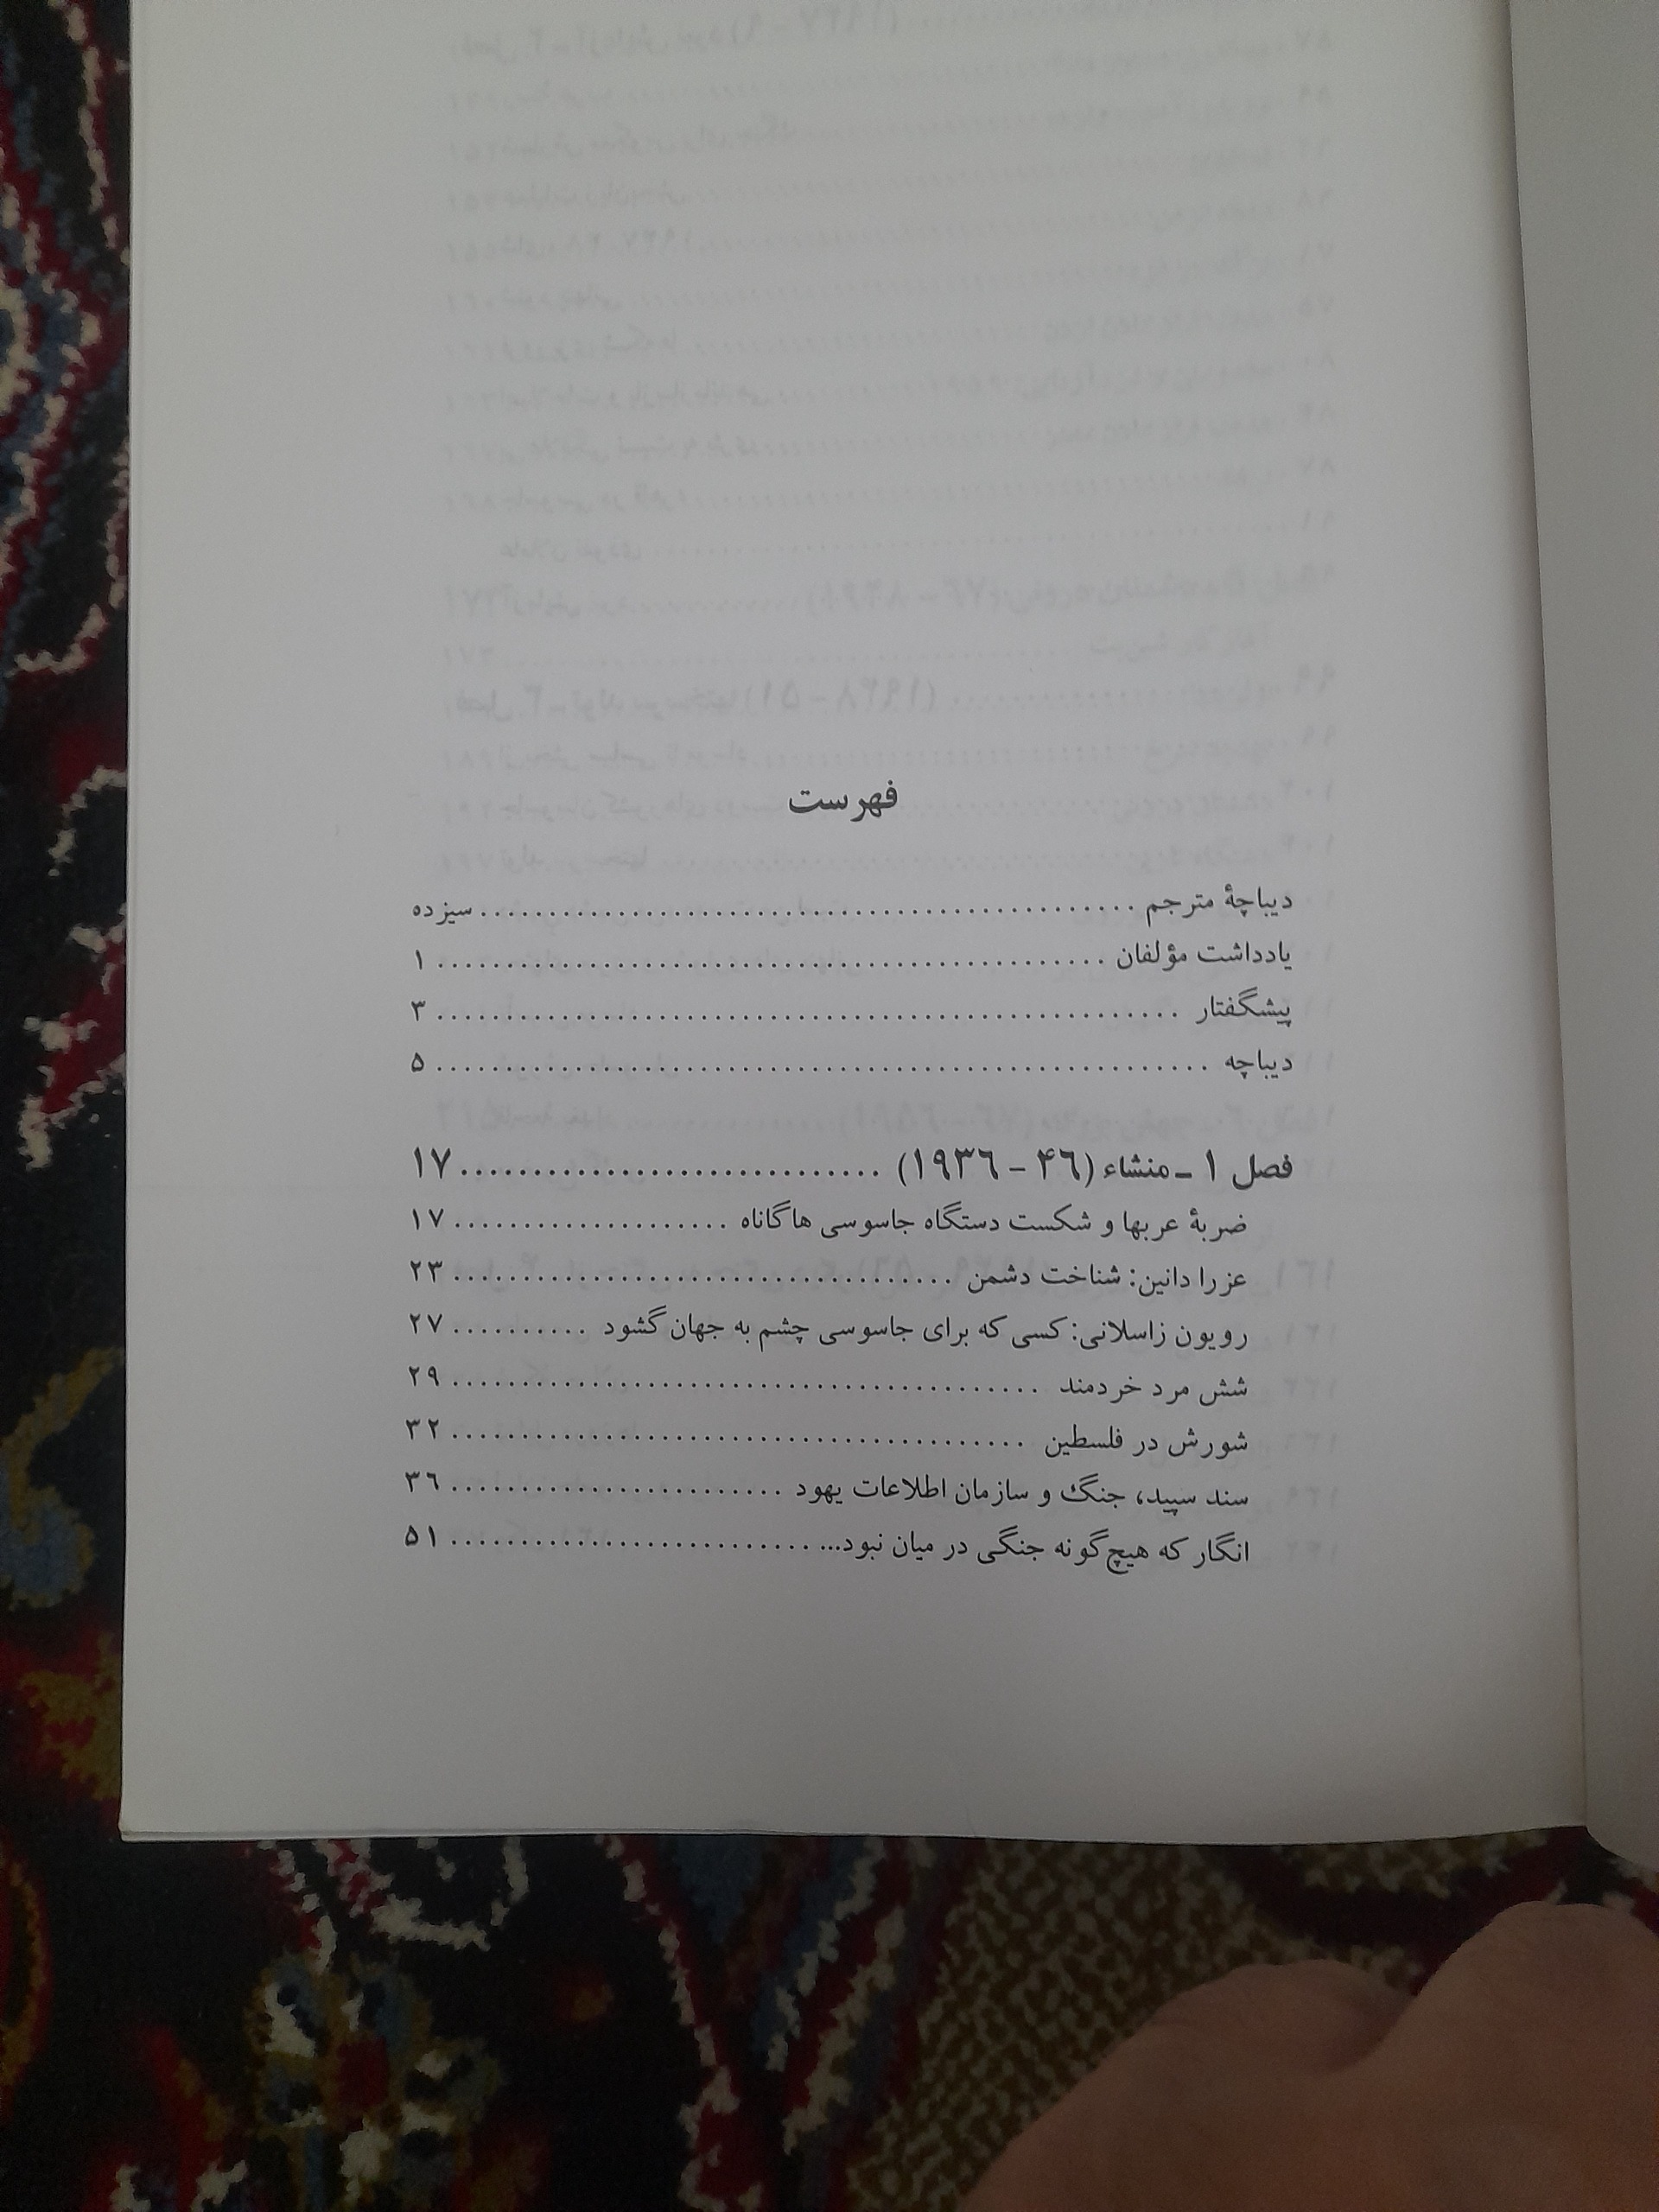 فهرست
دیباچهٔ مترجم ........ سیزده
یادداشت مؤلفان ........ ۱
پیشگفتار ........ ۳
دیباچه ........ ۵
فصل ۱ ـ منشاء (۴۶ - ۱۹۳۶) ........ ۱۷
ضربهٔ عربها و شکست دستگاه جاسوسی هاگاناه ........ ۱۷
عزرا دانین: شناخت دشمن ........ ۲۳
رویون زاسلانی: کسی که برای جاسوسی چشم به جهان گشود ........ ۲۷
شش مرد خردمند ........ ۲۹
شورش در فلسطین ........ ۳۲
سند سپید، جنگ و سازمان اطلاعات یهود ........ ۳۶
انگار که هیچ‌گونه جنگی در میان نبود... ........ ۵۱